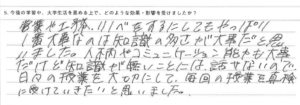 5. 今後の学習や、大学生活を営みる上で、どのような効果・影響を受けましたか？
営業や
をするにしてもやっぱり
1番大事なのは知識の多さが大事だと思い
ました。人柄やコミュニケーション能力も大事
だけど知識が無いことには、話せないので、
日々の授業を大切にして、毎回の授業を真検
に受けていきたいと思いました。